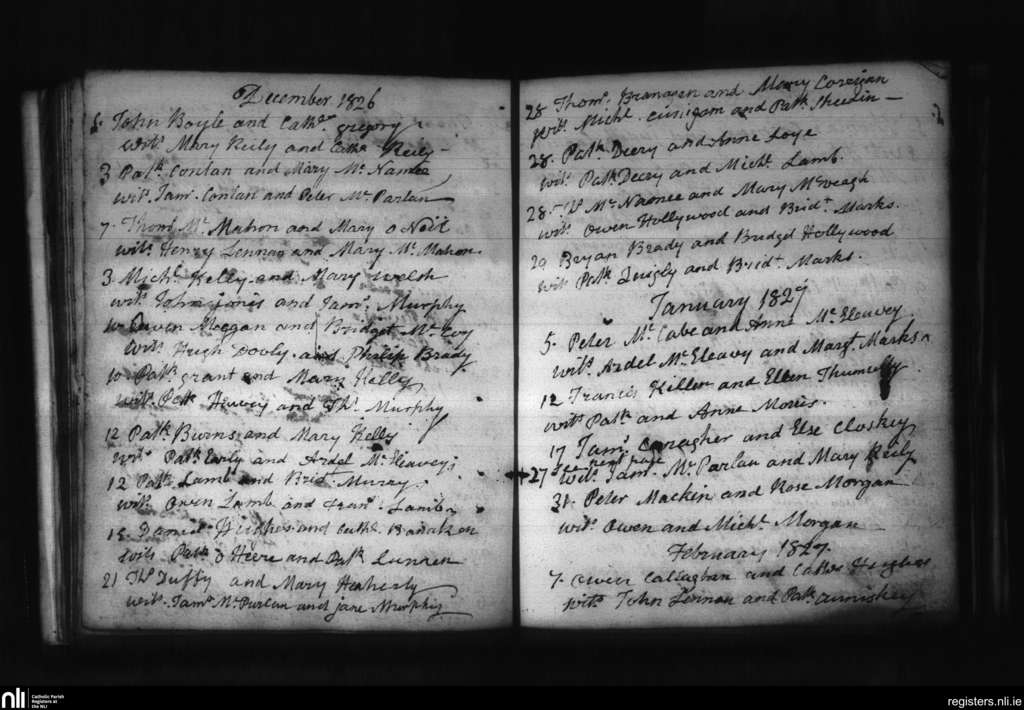 December 1826
5. John Boyle and Cathe. gregory
wits. Mary Reily and Cathe. Reily
3 Patk. Conlan and Mary Mc. Namee
wits. Jams. Conlan and Peter Mc. Parlan
7. Thoms. Mc. Mahon and Mary o Neil
wits. Henry Lennan and Mary Mc. Mahon
3 Michl. Kelly and Mary welsh
wits. John and Jams. Murphy
10 Owen Meegan and Bridget Mc. Evoy
wits. Hugh Dooly. and Philip Brady
10 Patk. grant and Mary Kelly
wits. Patk. and Ths. Murphy
12 Patk. Burns and Mary Kelly
wits. Patk. Early and Ardel Mc. Eleavey
12 Patk. Lamb and Brid. Murry
wits. Owen Lamb and Fran. Lamb
Hughes and Cathe.
wits. Patk. O Heere and Patk. Lunnen
21 Ths. Duffy and Mary Heherty
wits. Jams. Mc. Parlan and jane Murphy
28 Thoms. Branagen and Mary Corrigan
wits. Michl. and Patk.
28. Patk. Deery and Anne Loye
wits. Patk. Deery and Michl. Lamb.
28. Ths. Mc. Namee and Mary Mc.veagh
wits. Owen Hollywood and Bridt. Marks.
29 Bryan Brady and Bridget Hollywood
wits Patk. Quigly and Bridt. Marks.
January 1827
5. Peter Mc. Cabe and Anne Mc. Eleavey
wits. Ardel Mc. Eleavy and Margt. Marks
12 Francis Killen and Ellen
wits Patk. and Anne Morris.
17 Jams. and Else Closkey
see next page
27 wits. Jams. Mc. Parlan and Mary Reily
31. Peter Mackin and Rose Morgan
wits. Owen and Michl. Morgan
February 1827.
7. Owen Callaghan and Hughes
wits. John Lennan and Patk.
nli
Catholic Parish
Registers at
the NLI
registers.nli.ie